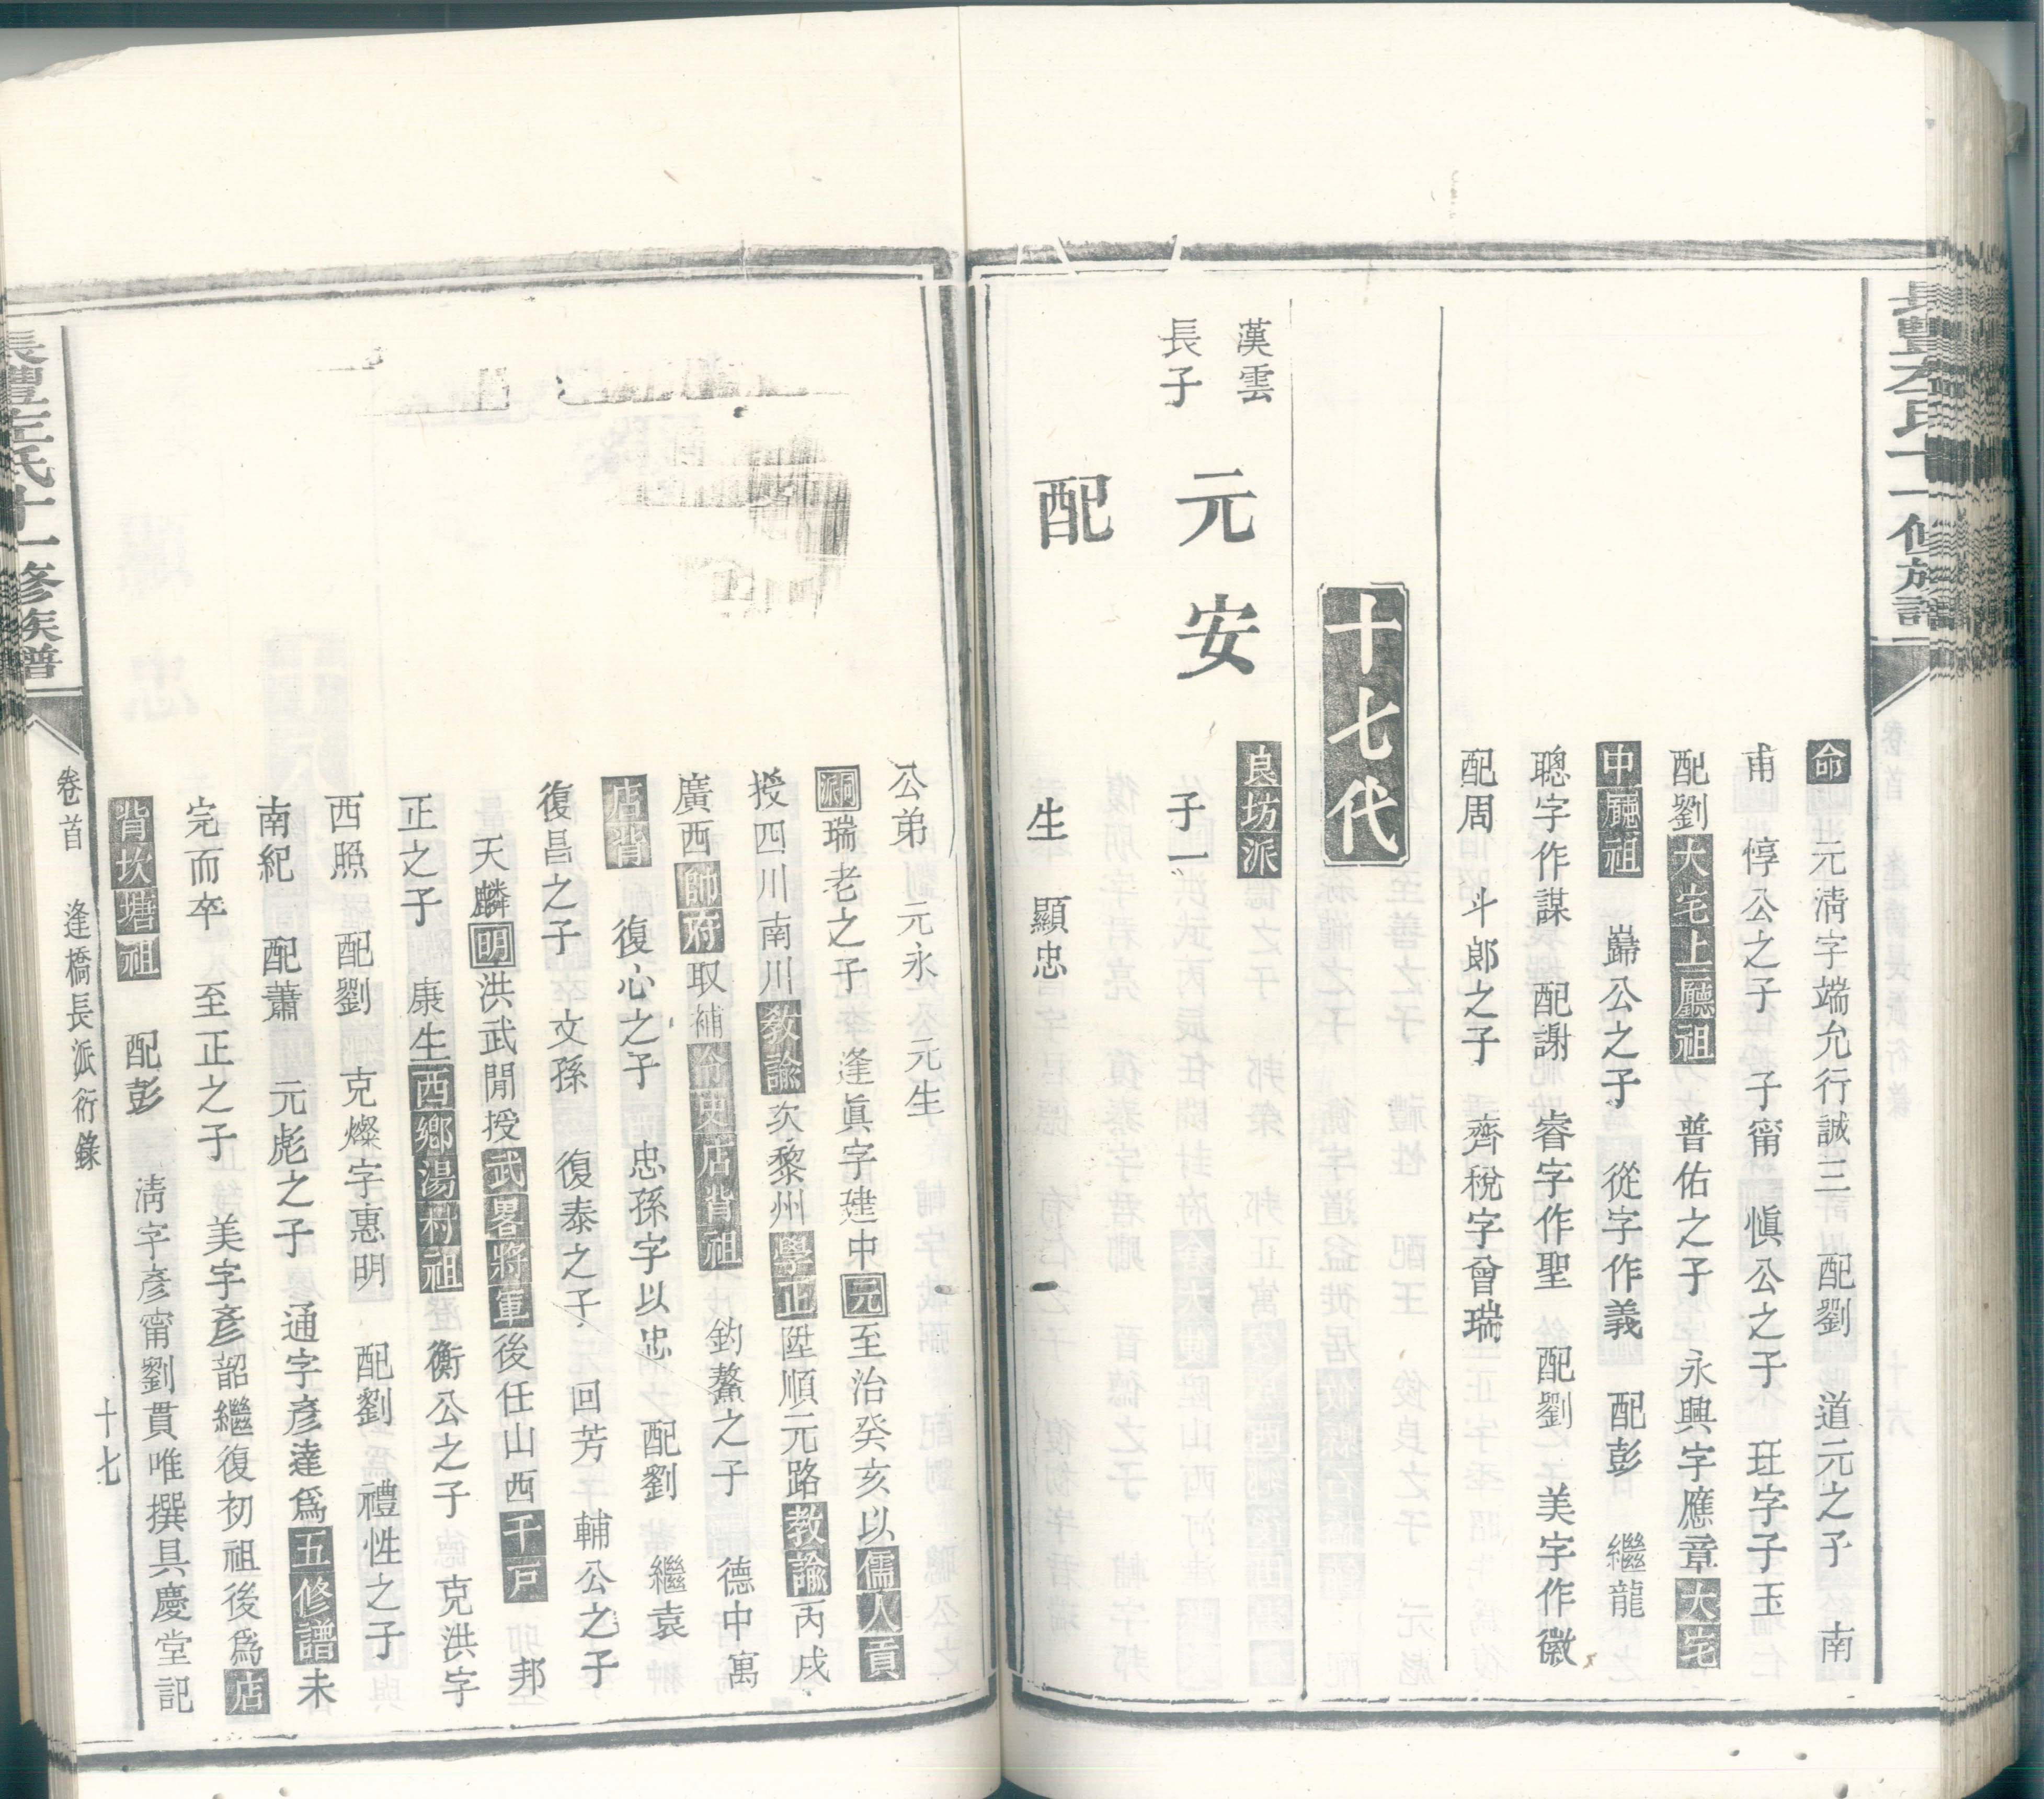 長豐左氏十一修族譜
命　元淸字端允行誠三　配劉　道元之子　南
甫　惇公之子　子甯　愼公之子　玨字子玉
配劉大宅上廳祖　普佑之子　永興字應章大宅
中廳祖　巋公之子　從字作義　配彭　繼龍
聰字作謀　配謝　睿字作聖　配劉　美字作徽
配周　斗郎之子　齊稅字曾瑞
十七代
漢雲
長子
元安
良坊派
子一
配
生　顯忠
公弟　元永　元生
洞瑞老之子　逢眞字建中元至治癸亥以儒人貢
授四川南川敎諭次黎州學正陞順元路教諭丙戌
廣西帥府取補令史店背祖　釣鰲之子　德中寓
店背　復心之子　忠孫字以忠　配劉　繼袁
復昌之子　文孫　復泰之子　回芳　輔公之子
天麟明洪武閒授武畧將軍後任山西千戸　邦
正之子　康生西鄉湯村祖　衡公之子　克洪字
西照　配劉　克燦字惠明　配劉　禮性之子
南紀　配蕭　元彪之子　通字彥達爲五修譜未
完而卒　至正之子　美字彥韶繼復初祖後爲店
背坎塘祖　配彭　淸字彥甯劉貫唯撰具慶堂記
長豐左氏十一修族譜
卷首　逢橋長派衍錄
十七